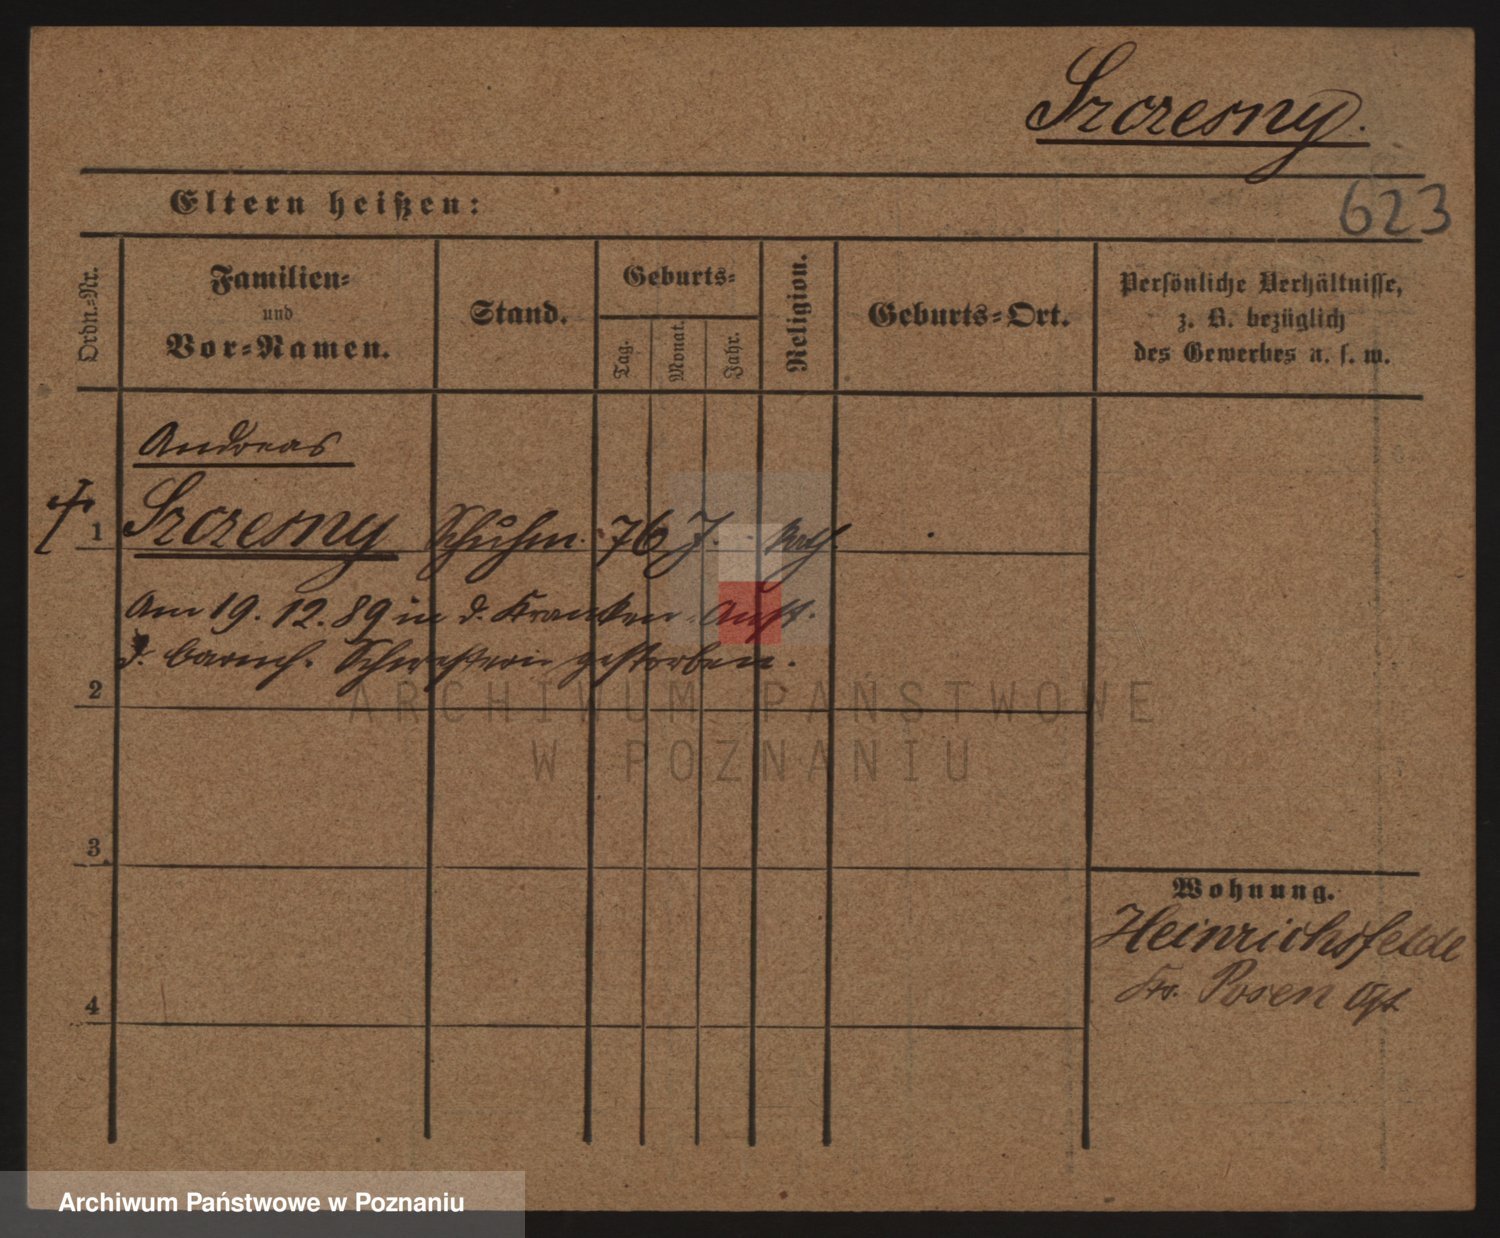 Szczesny.
623
Eltern heißen:
Ordn.-Nr.
Familien-
und
Vor-Namen.
Stand.
Geburts-
Tag.
Monat.
Jahr.
Religion.
Geburts-Ort.
Persönliche Verhältnisse,
z. B. bezüglich
des Gewerbes u. s. w.
Andreas
1 Szczesny Schuhm. 76 J. kath.
Am 19. 12. 89 in d. Kranken-Anst.
d. barmh. Schwestern gestorben.
2
3
4
Wohnung.
Heinrichsfelde
Kr. Posen Ost
ARCHIWUM PAŃSTWOWE
W POZNANIU
Archiwum Państwowe w Poznaniu